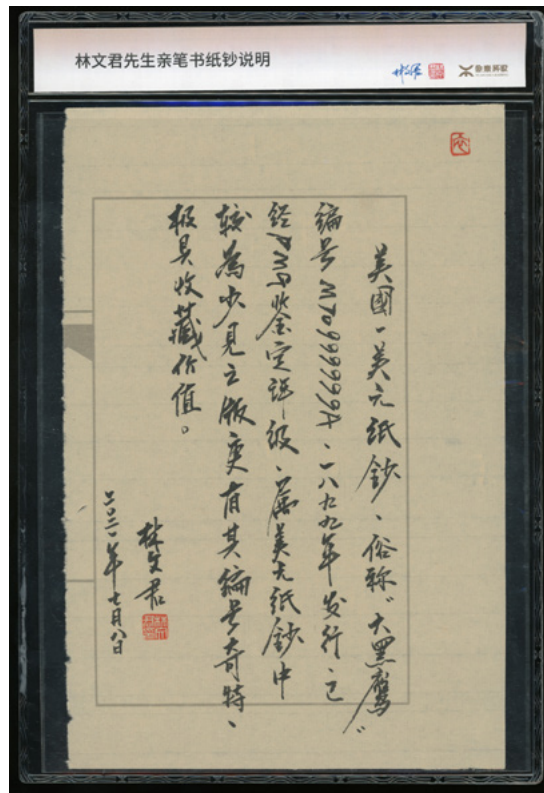 林文君先生亲笔书纸钞说明
美國一美元纸鈔、俗称“大黑鹰”
编号M70999999A、一八九九年发行、已
经PMG鉴定评级、属美元纸鈔中
较為少见之版更有其编号奇特、
极具收藏价值。
林文君
二〇二一年七月八日